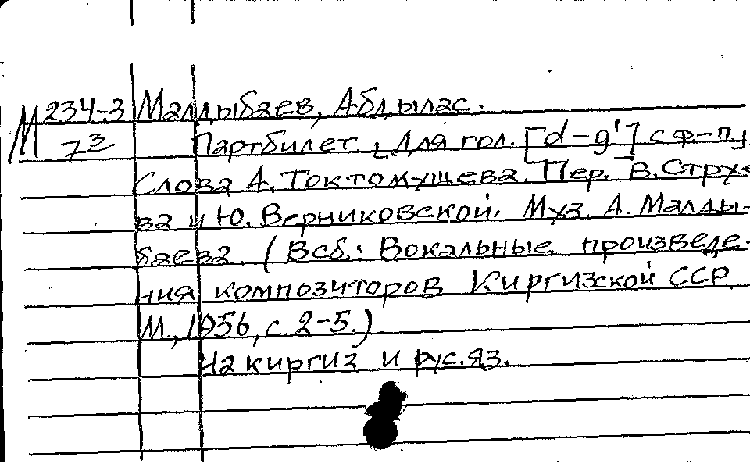 М 234-3 Малдыбаев, Абдылас.
73 Партбилет. Для гол. [d-g'] с ф-п.
Слова А. Токтомушева. Пер. В. Струко-
ва и Ю. Верниковской. Муз. А. Малды-
баева. (В сб.: Вокальные произведе-
ния композиторов Киргизской ССР.
М., 1956, с. 2-5.)
На киргиз и рус. яз.